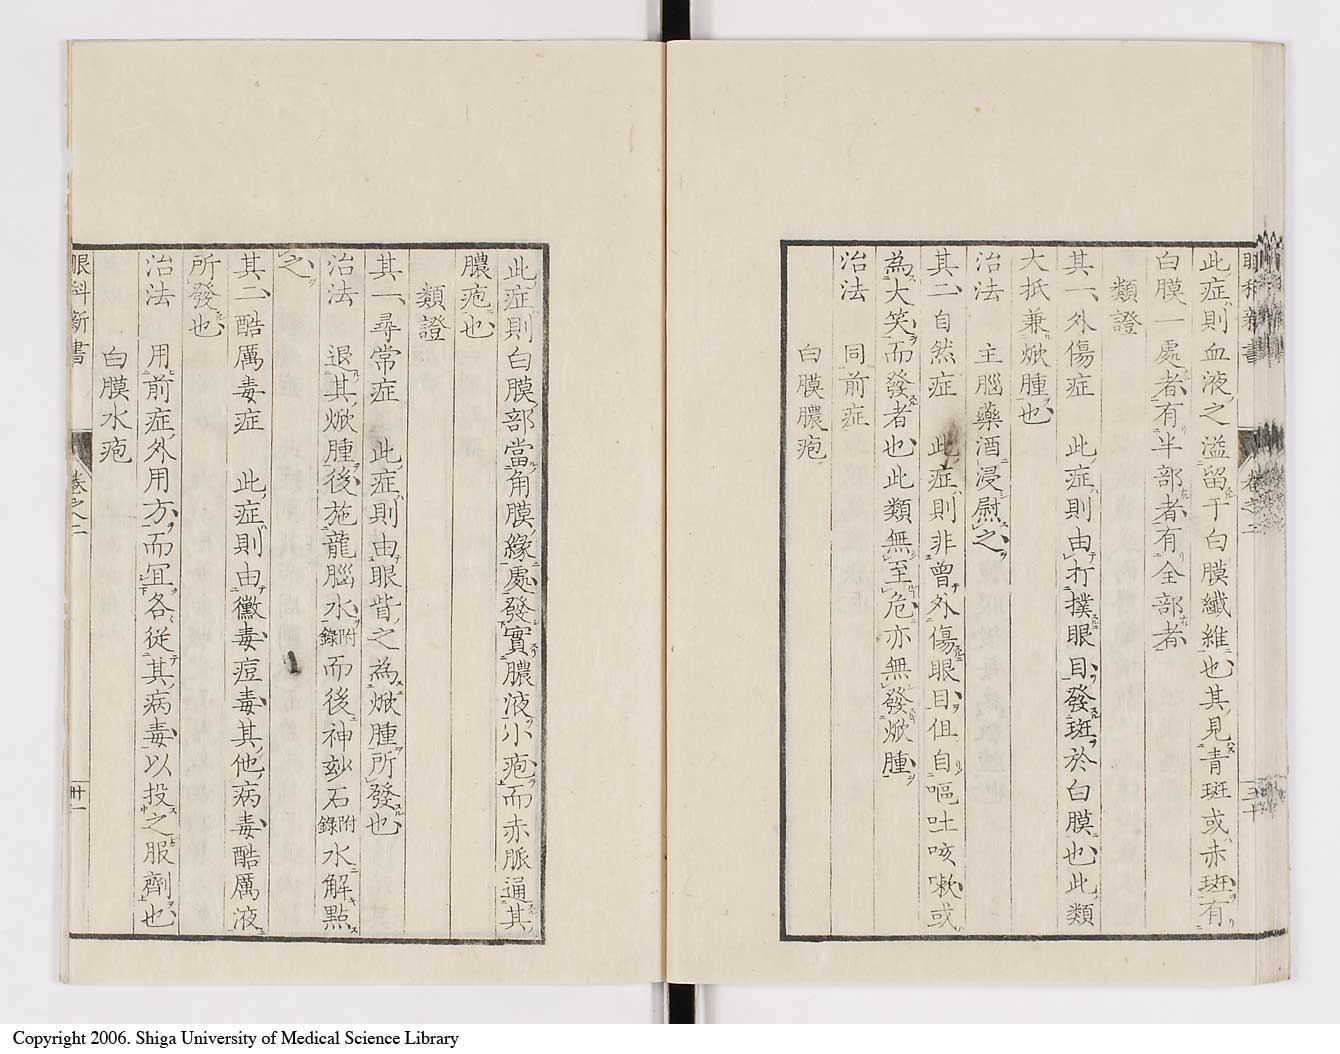 此症則血液之溢留于白膜纖維也其見青斑或赤斑有
白膜一處者有半部者有全部者
類證
其一、外傷症　此症則由打撲眼目發斑於白膜也此類
大抵兼焮腫也
治法　主腦藥酒浸慰之
其二、自然症　此症則非曾外傷眼目但自嘔吐咳嗽或
為大笑而發者也此類無至危亦無發焮腫
治法　同前症
白膜膿疱
眼科新書
卷之二
三十
此症則白膜部當角膜緣處發實膿液小疱而赤脈通其
膿疱也
類證
其一、尋常症　此症則由眼眥之為焮腫所發也
治法　退其焮腫後施龍腦水附錄而後神玅石附錄水解點
之
其二、酷厲毒症　此症則由黴毒痘毒其他病毒酷厲液
所發也
治法　用前症外用方而冝各從其病毒以投之服劑也
白膜水疱
眼科新書
卷之二
卅一
Copyright 2006. Shiga University of Medical Science Library